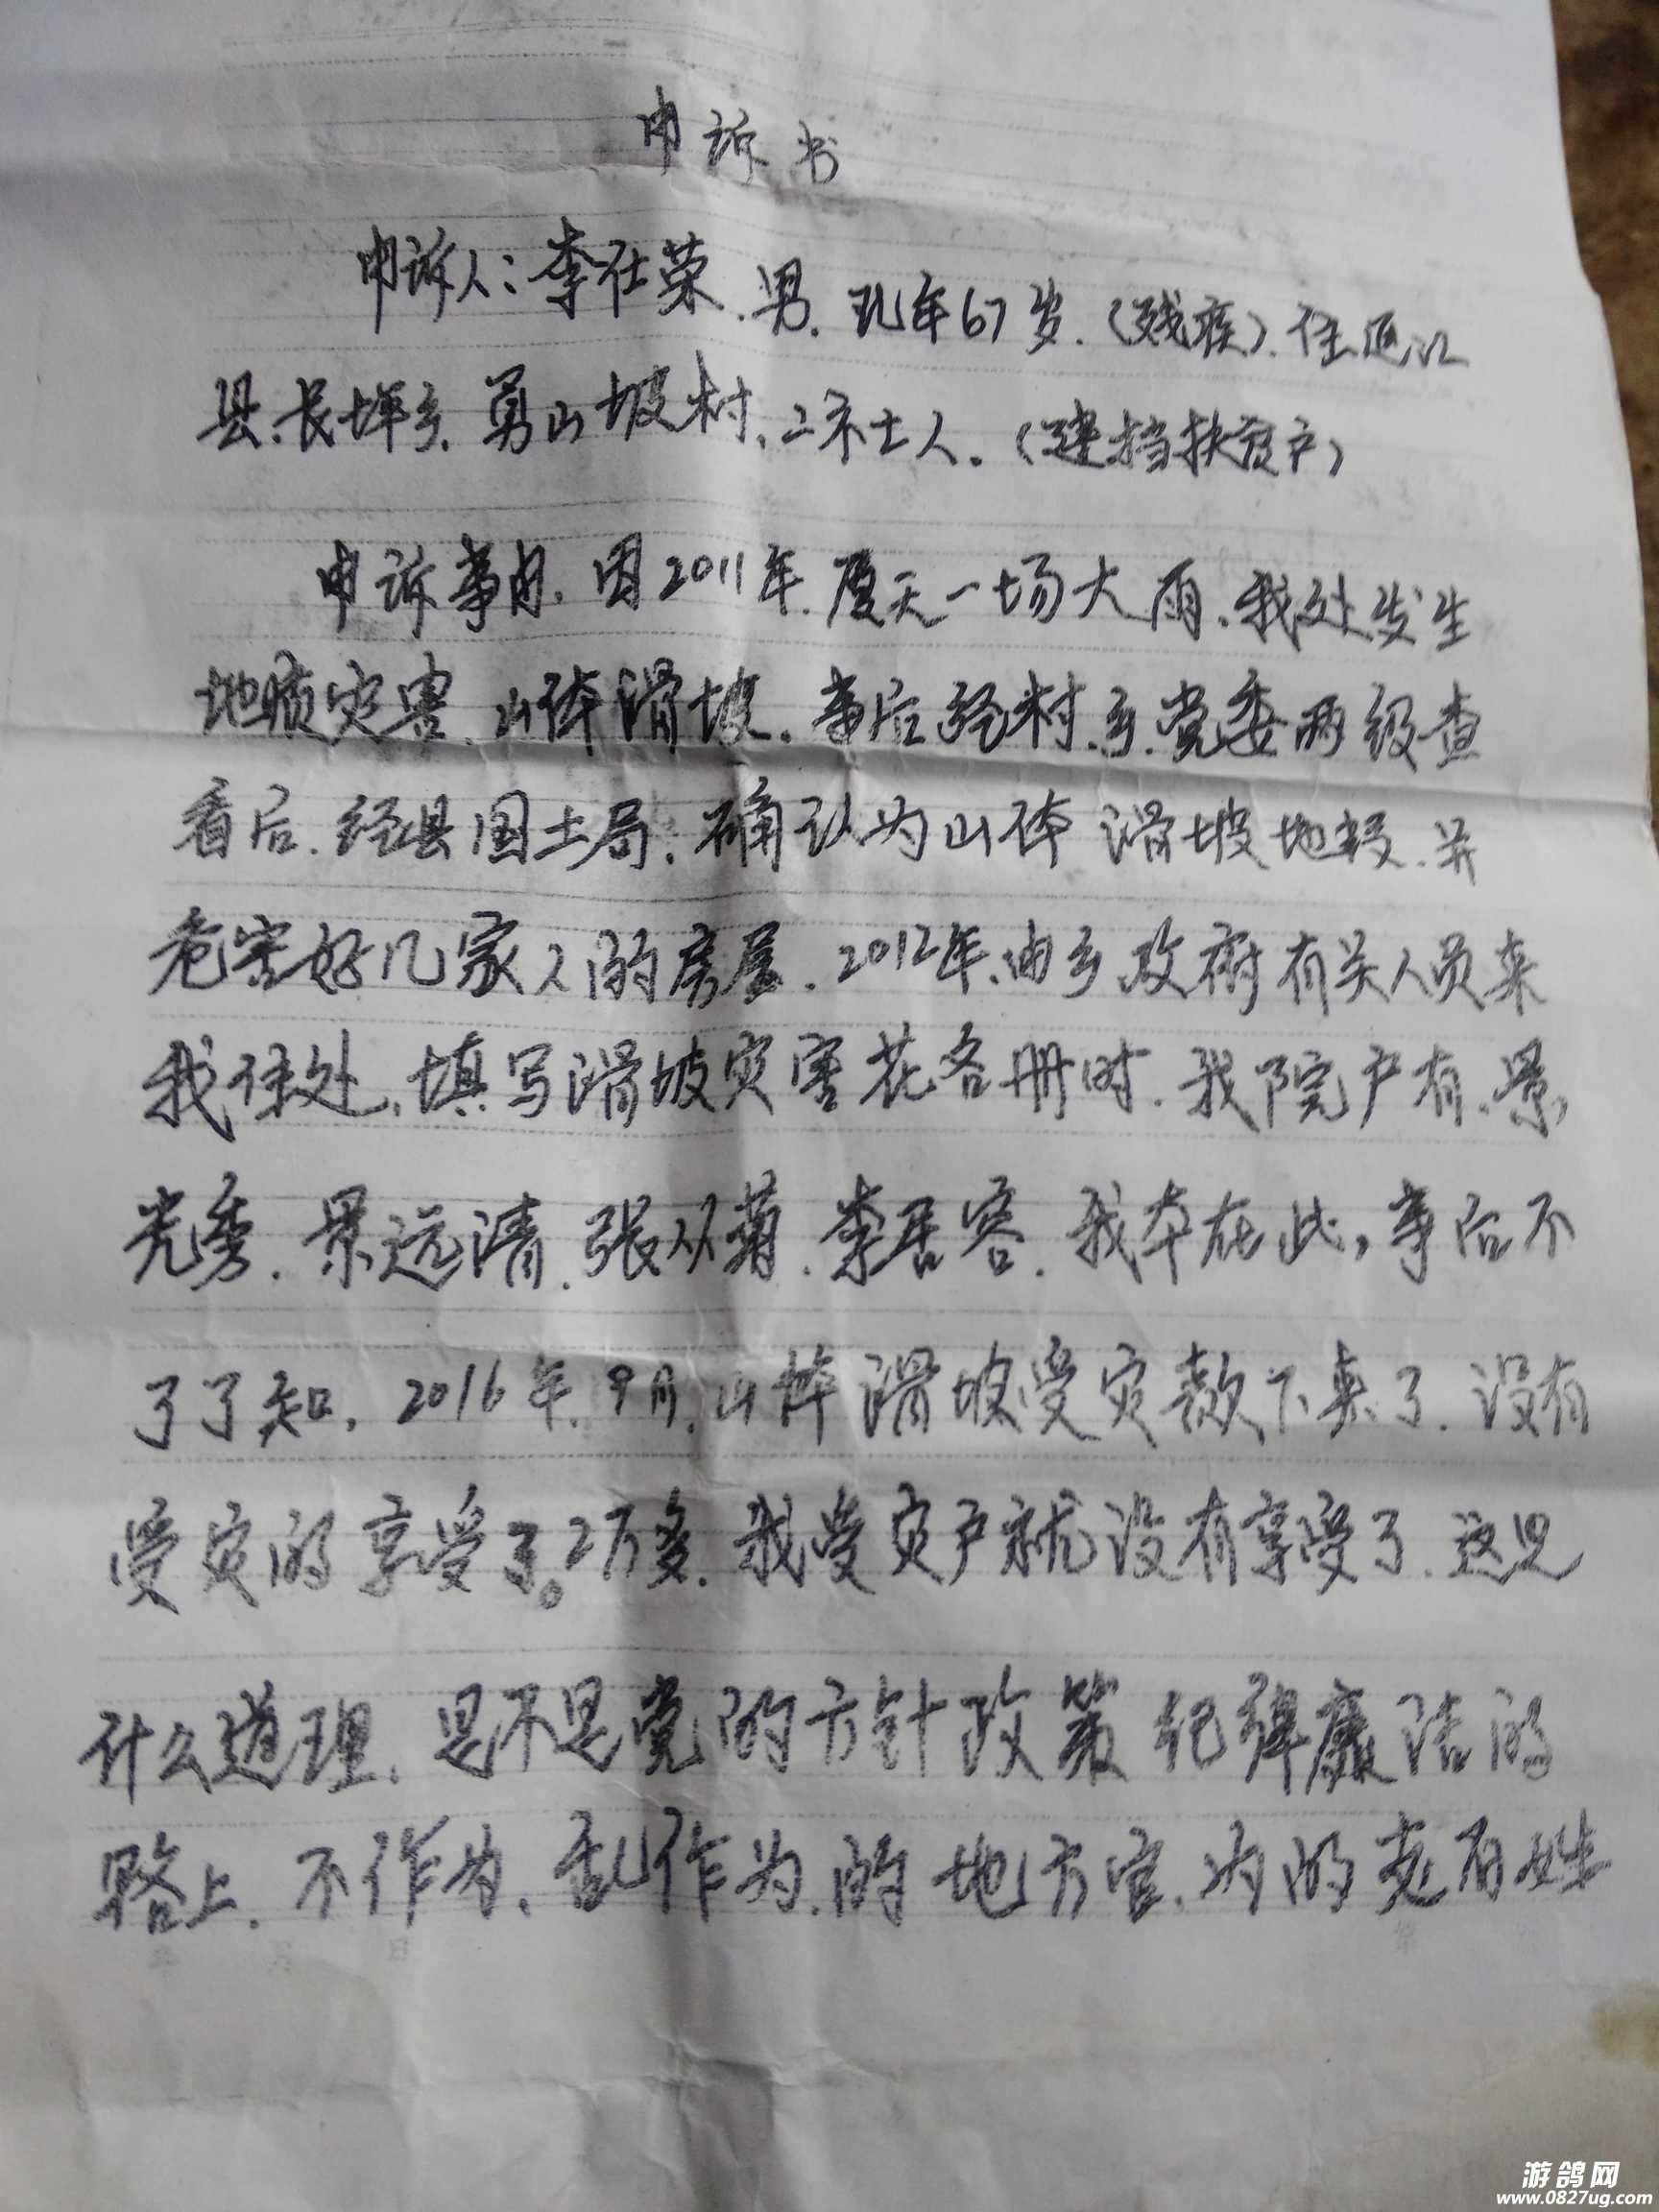 申诉书
申诉人：李仕荣.男.现年67岁.（残疾）.住通江
县.长坪乡.勇山坡村.二社人.（建档扶贫户）
申诉事由.因2011年.夏天一场大雨.我处发生
地质灾害.山体滑坡.事后经村.乡.党委两级查
看后.经县国土局.确认为山体滑坡地段.并
危害好几家人的房屋.2012年.由乡政府有关人员来
我住处.填写滑坡灾害花名册时.我院户有.景
光秀.景远清.张从菊.李居容.我本在此,事后不
了了知.2016年.9月.山体滑坡受灾款下来了.没有
受灾的享受了。2万多.我受灾户就没有享受了.这是
什么道理.是不是党的方针政策纪律廉洁的
路上.不作为.乱作为.的地方官.为的克百姓
游鸽网
www.0827ug.com